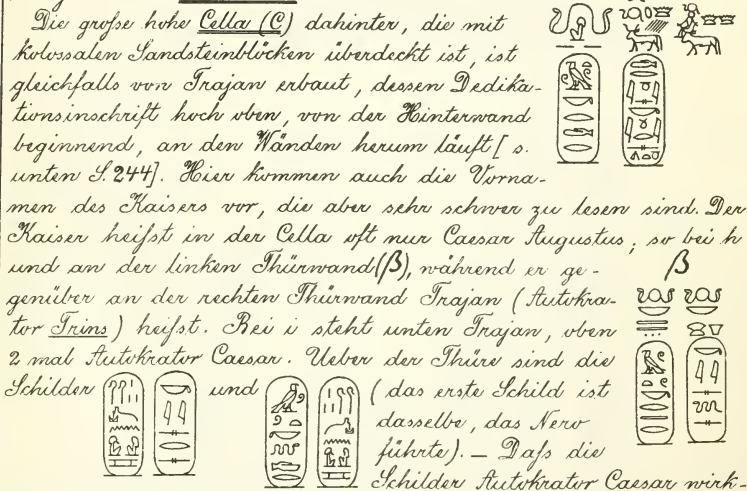 Die grofse hohe Cella (C) dahinter, die mit
kolossalen Sandsteinblöcken überdeckt ist, ist
gleichfalls von Trajan erbaut, dessen Dedika-
tionsinschrift hoch oben, von der Hinterwand
beginnend, an den Wänden herum läuft [s.
unten S. 244]. Hier kommen auch die Vorna-
men des Kaisers vor, die aber sehr schwer zu lesen sind. Der
Kaiser heifst in der Cella oft nur Caesar Augustus; so bei h
und an der linken Thürwand (β), während er ge-
β
genüber an der rechten Thürwand Trajan (Autokra-
tor Trins) heifst. Bei i steht unten Trajan, oben
2 mal Autokrator Caesar. Ueber der Thüre sind die
Schilder und (das erste Schild ist
dasselbe, das Nero
führte). — Dafs die
Schilder Autokrator Caesar wirk-